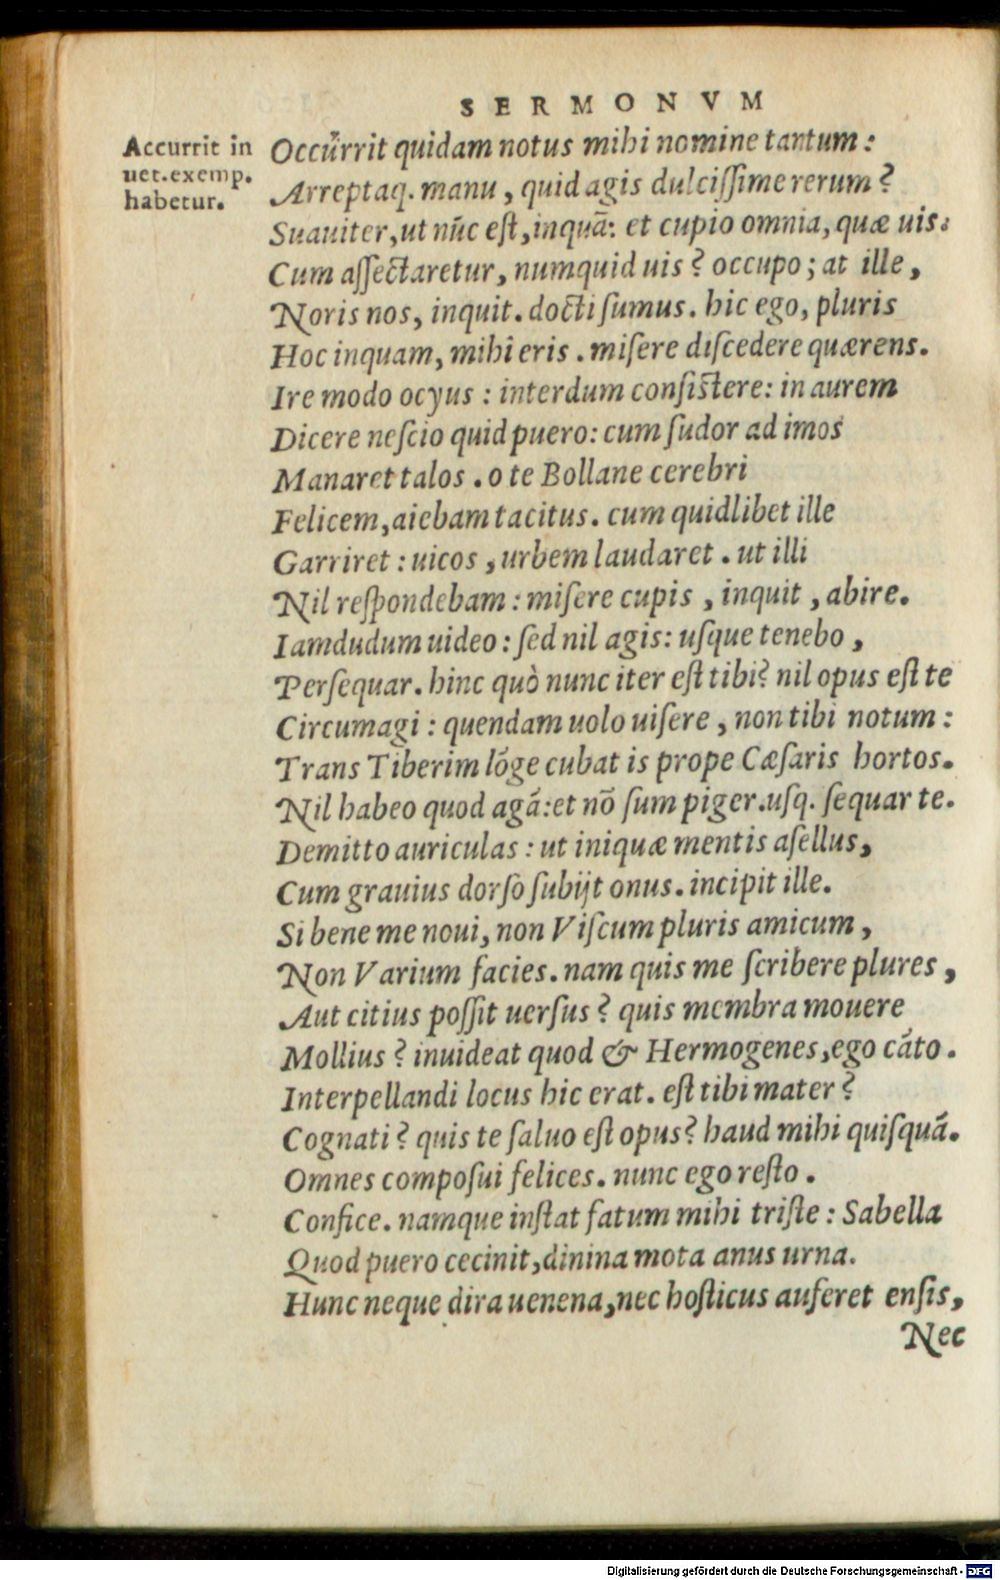 SERMONVM
Accurrit in
uet.exemp.
habetur.
Occúrrit quidam notus mihi nomine tantum:
Arreptaq. manu, quid agis dulciſſime rerum?
Suauiter, ut nūc eſt, inquā: et cupio omnia, quæ uis.
Cum aſſectaretur, numquid uis? occupo; at ille,
Noris nos, inquit. docti ſumus. hic ego, pluris
Hoc inquam, mihi eris. miſere diſcedere quærens.
Ire modo ocyus: interdum conſiſtere: in aurem
Dicere neſcio quid puero: cum ſudor ad imos
Manaret talos. o te Bollane cerebri
Felicem, aiebam tacitus. cum quidlibet ille
Garriret: uicos, urbem laudaret. ut illi
Nil reſpondebam: miſere cupis, inquit, abire.
Iamdudum uideo: ſed nil agis: uſque tenebo,
Perſequar. hinc quò nunc iter eſt tibi? nil opus eſt te
Circumagi: quendam uolo uiſere, non tibi notum:
Trans Tiberim lōge cubat is prope Cæſaris hortos.
Nil habeo quod agā: et nō ſum piger. uſq. ſequar te.
Demitto auriculas: ut iniquæ mentis aſellus,
Cum grauius dorſo ſubijt onus. incipit ille.
Si bene me noui, non Viſcum pluris amicum,
Non Varium facies. nam quis me ſcribere plures,
Aut citius poſſit uerſus? quis membra mouere
Mollius? inuideat quod & Hermogenes, ego cāto.
Interpellandi locus hic erat. eſt tibi mater?
Cognati? quis te ſaluo eſt opus? haud mihi quiſquā.
Omnes compoſui felices. nunc ego reſto.
Confice. namque inſtat fatum mihi triſte: Sabella
Quod puero cecinit, dinina mota anus urna.
Hunc neque dira uenena, nec hoſticus auferet enſis,
Nec
Digitalisierung gefördert durch die Deutsche Forschungsgemeinschaft - DFG